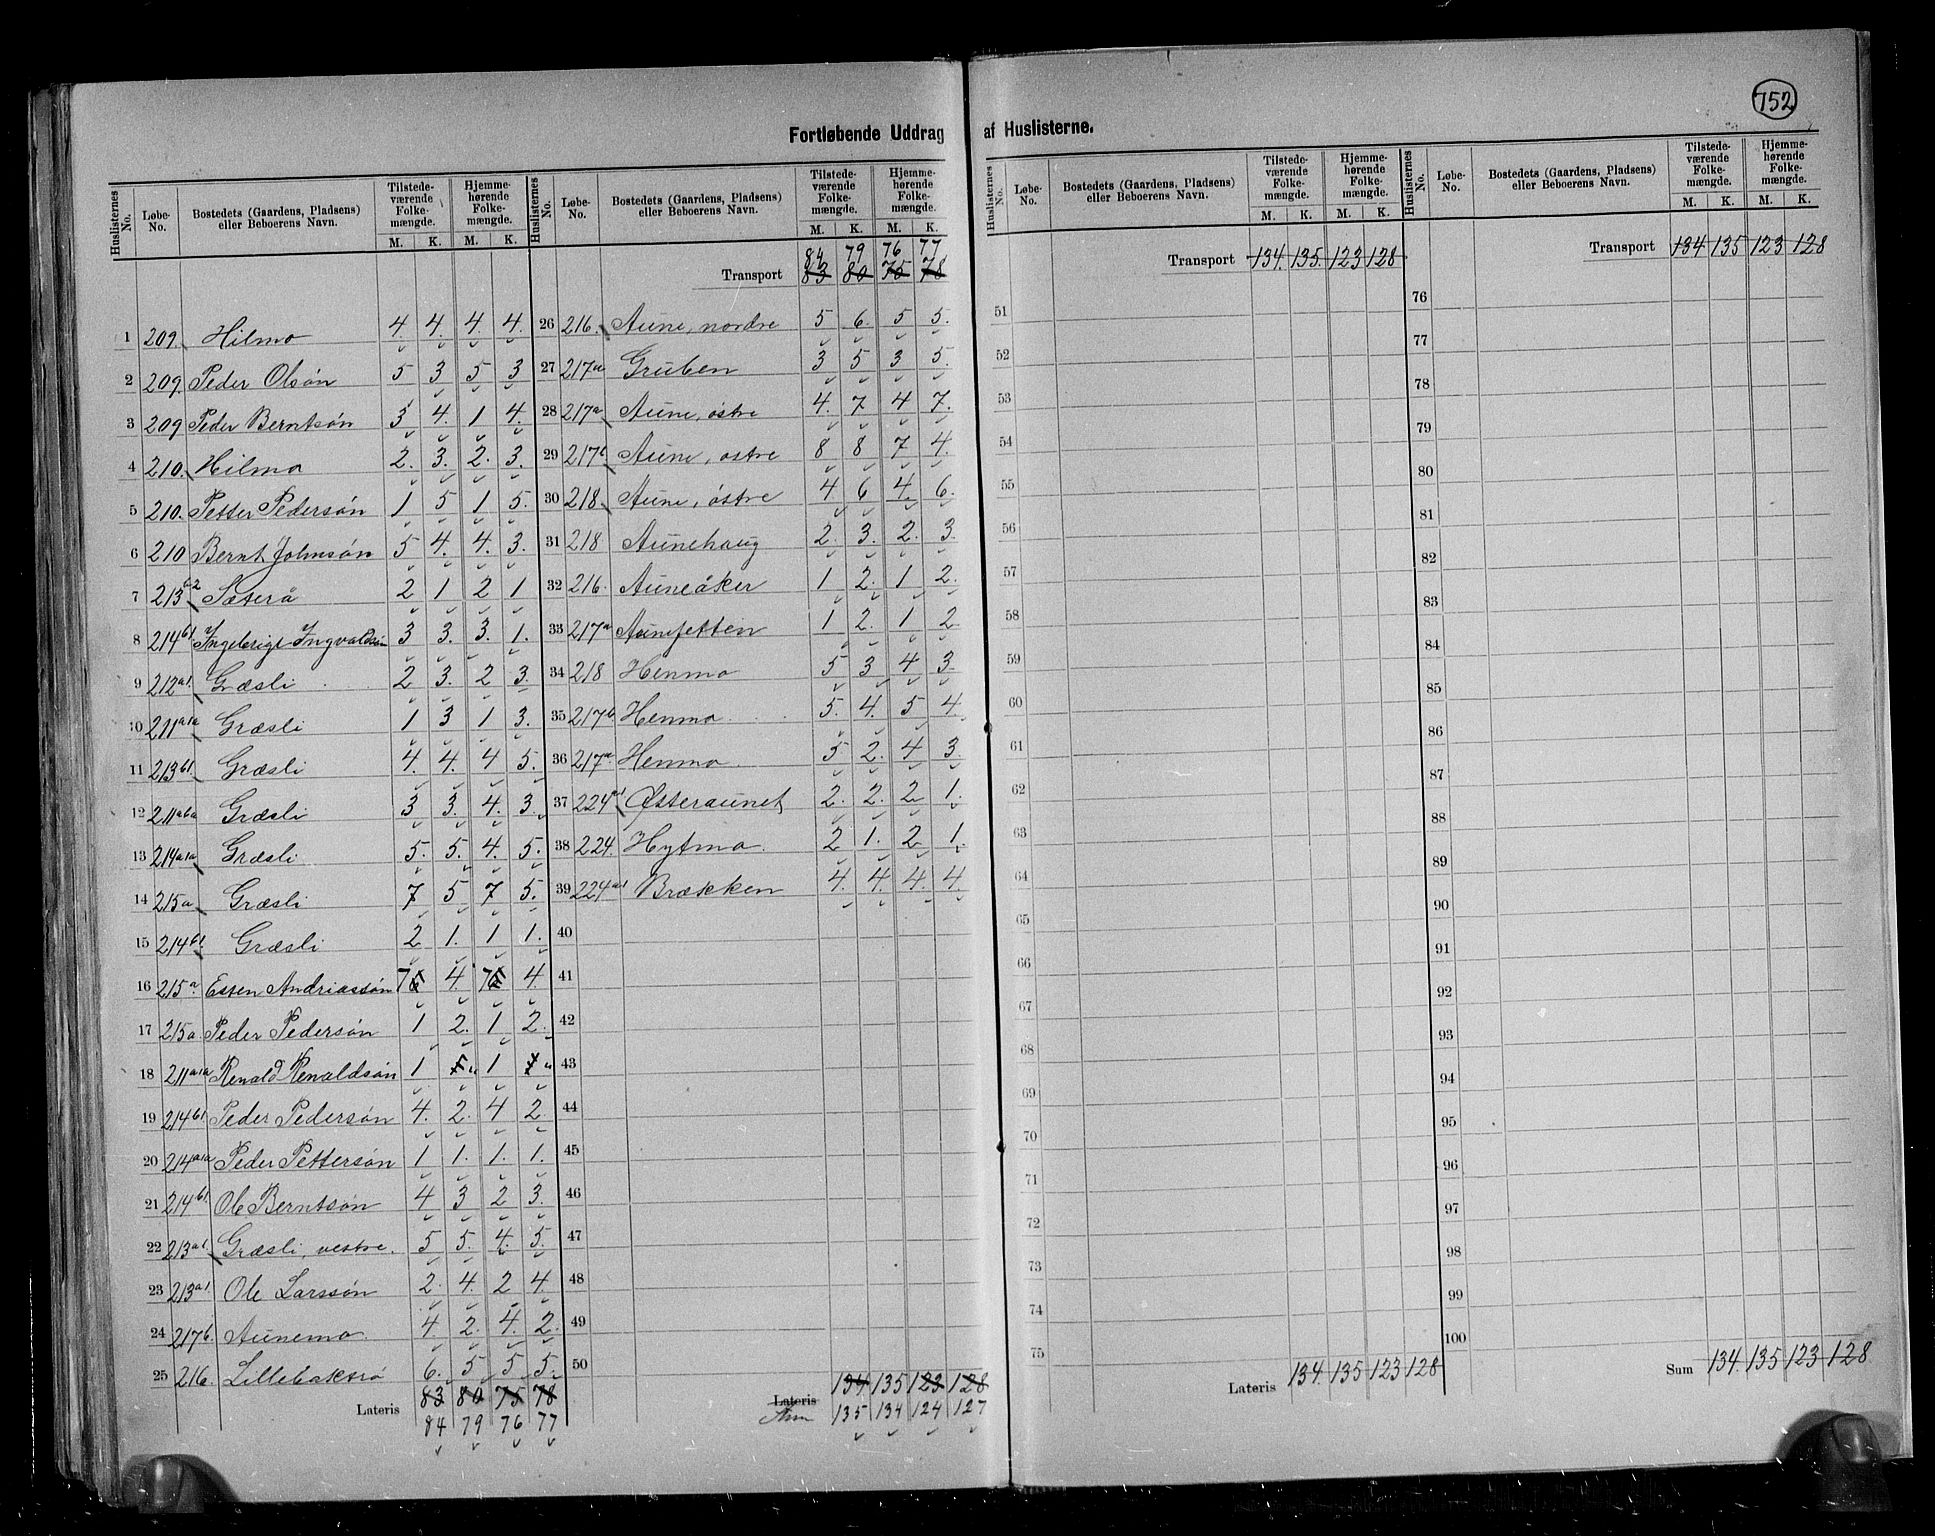 752
Fortløbende Uddrag af Huslisterne.
Huslisternes No. Løbe-No. Bostedets (Gaardens, Pladsens) eller Beboerens Navn. Tilstede-værende Folke-mængde. M. K. Hjemme-hørende Folke-mængde. M. K.
1 209. Hilmo 4. 4. 4. 4.
2 209. Peder Olsøn 5 3 5 3
3 209 Peder Berntsøn 3 4. 1 4.
4 210. Hilmo 2. 3. 2. 3.
5 210. Petter Pedersøn 1 5 1 5.
6 210 Bernt Johnsøn 5 4. 4. 3.
7 213 Sæterå 2 1 2 1
8 214b1. Ingebrigt Ingvaldsøn 3 3. 3. 1.
9 212a1. Græsli 2 3. 2 3.
10 211a1a Græsli 1 3 1 3.
11 213b1. Græsli 4. 4. 4 5.
12 211a6a Græsli 3 3. 4. 3.
13 214a1a Græsli 5. 5. 4. 5.
14 215a Græsli 7 5 7 5.
15 214b1. Græsli 2 1. 1 1.
16 215a Esten Andriassøn 7 4. 7 4.
17 215a. Peder Pedersøn 1 2. 1 2.
18 211a1a Renald Renaldsøn 1 " 1 "
19 214b1. Peder Pedersøn 4. 2. 4 2.
20 214a1a Peder Pettersøn 1 1. 1. 1.
21 214b1. Ole Berntsøn 4 3 2 3.
22 213a1. Græsli, vestre. 5 5. 4. 5.
23 213a1. Ole Larssøn 2. 4. 2 4.
24 217b. Aunemo 4. 2. 4. 2.
25 216. Lillebakrø 6. 5 5 5.
Lateris 83 80 75 78
84 79 76 77
Huslisternes No. Løbe-No. Bostedets (Gaardens, Pladsens) eller Beboerens Navn. Tilstede-værende Folke-mængde. M. K. Hjemme-hørende Folke-mængde. M. K.
84 79 76 77
Transport 83 80 75 78
26 216. Aune, nordre 5 6. 5 5.
27 217a Gruben 3 5 3 5.
28 217a. Aune, østre 4. 7 4 7.
29 217b Aune, østre 8 8 7 4.
30 218. Aune, østre 4 6 4. 6.
31 218 Aunehaug 2. 3. 2. 3.
32 216. Auneåker 1 2. 1 2.
33 217a Aunefetten 1 2. 1 2
34 218 Henmo 5 3 4 3.
35 217b Henmo. 5. 4. 5 4.
36 217a. Henmo. 5 2. 4 3.
37 224a1. Østeraunet 2. 2. 2 1.
38 224. Hytmo. 2 1. 2 1.
39 224a1 Brækken 4. 4. 4. 4.
40
41
42
43
44
45
46
47
48
49
50
Lateris 134 135 123 128
Sum 135 134 124 127
Huslisternes No. Løbe-No. Bostedets (Gaardens, Pladsens) eller Beboerens Navn. Tilstede-værende Folke-mængde. M. K. Hjemme-hørende Folke-mængde. M. K.
Transport 134. 135. 123 128
51
52
53
54
55
56
57
58
59
60
61
62
63
64
65
66
67
68
69
70
71
72
73
74
75
Lateris 134. 135 123 128
Huslisternes No. Løbe-No. Bostedets (Gaardens, Pladsens) eller Beboerens Navn. Tilstede-værende Folke-mængde. M. K. Hjemme-hørende Folke-mængde. M. K.
Transport 134 135 123 128
76
77
78
79
80
81
82
83
84
85
86
87
88
89
90
91
92
93
94
95
96
97
98
99
100
Sum 134. 135 123 128